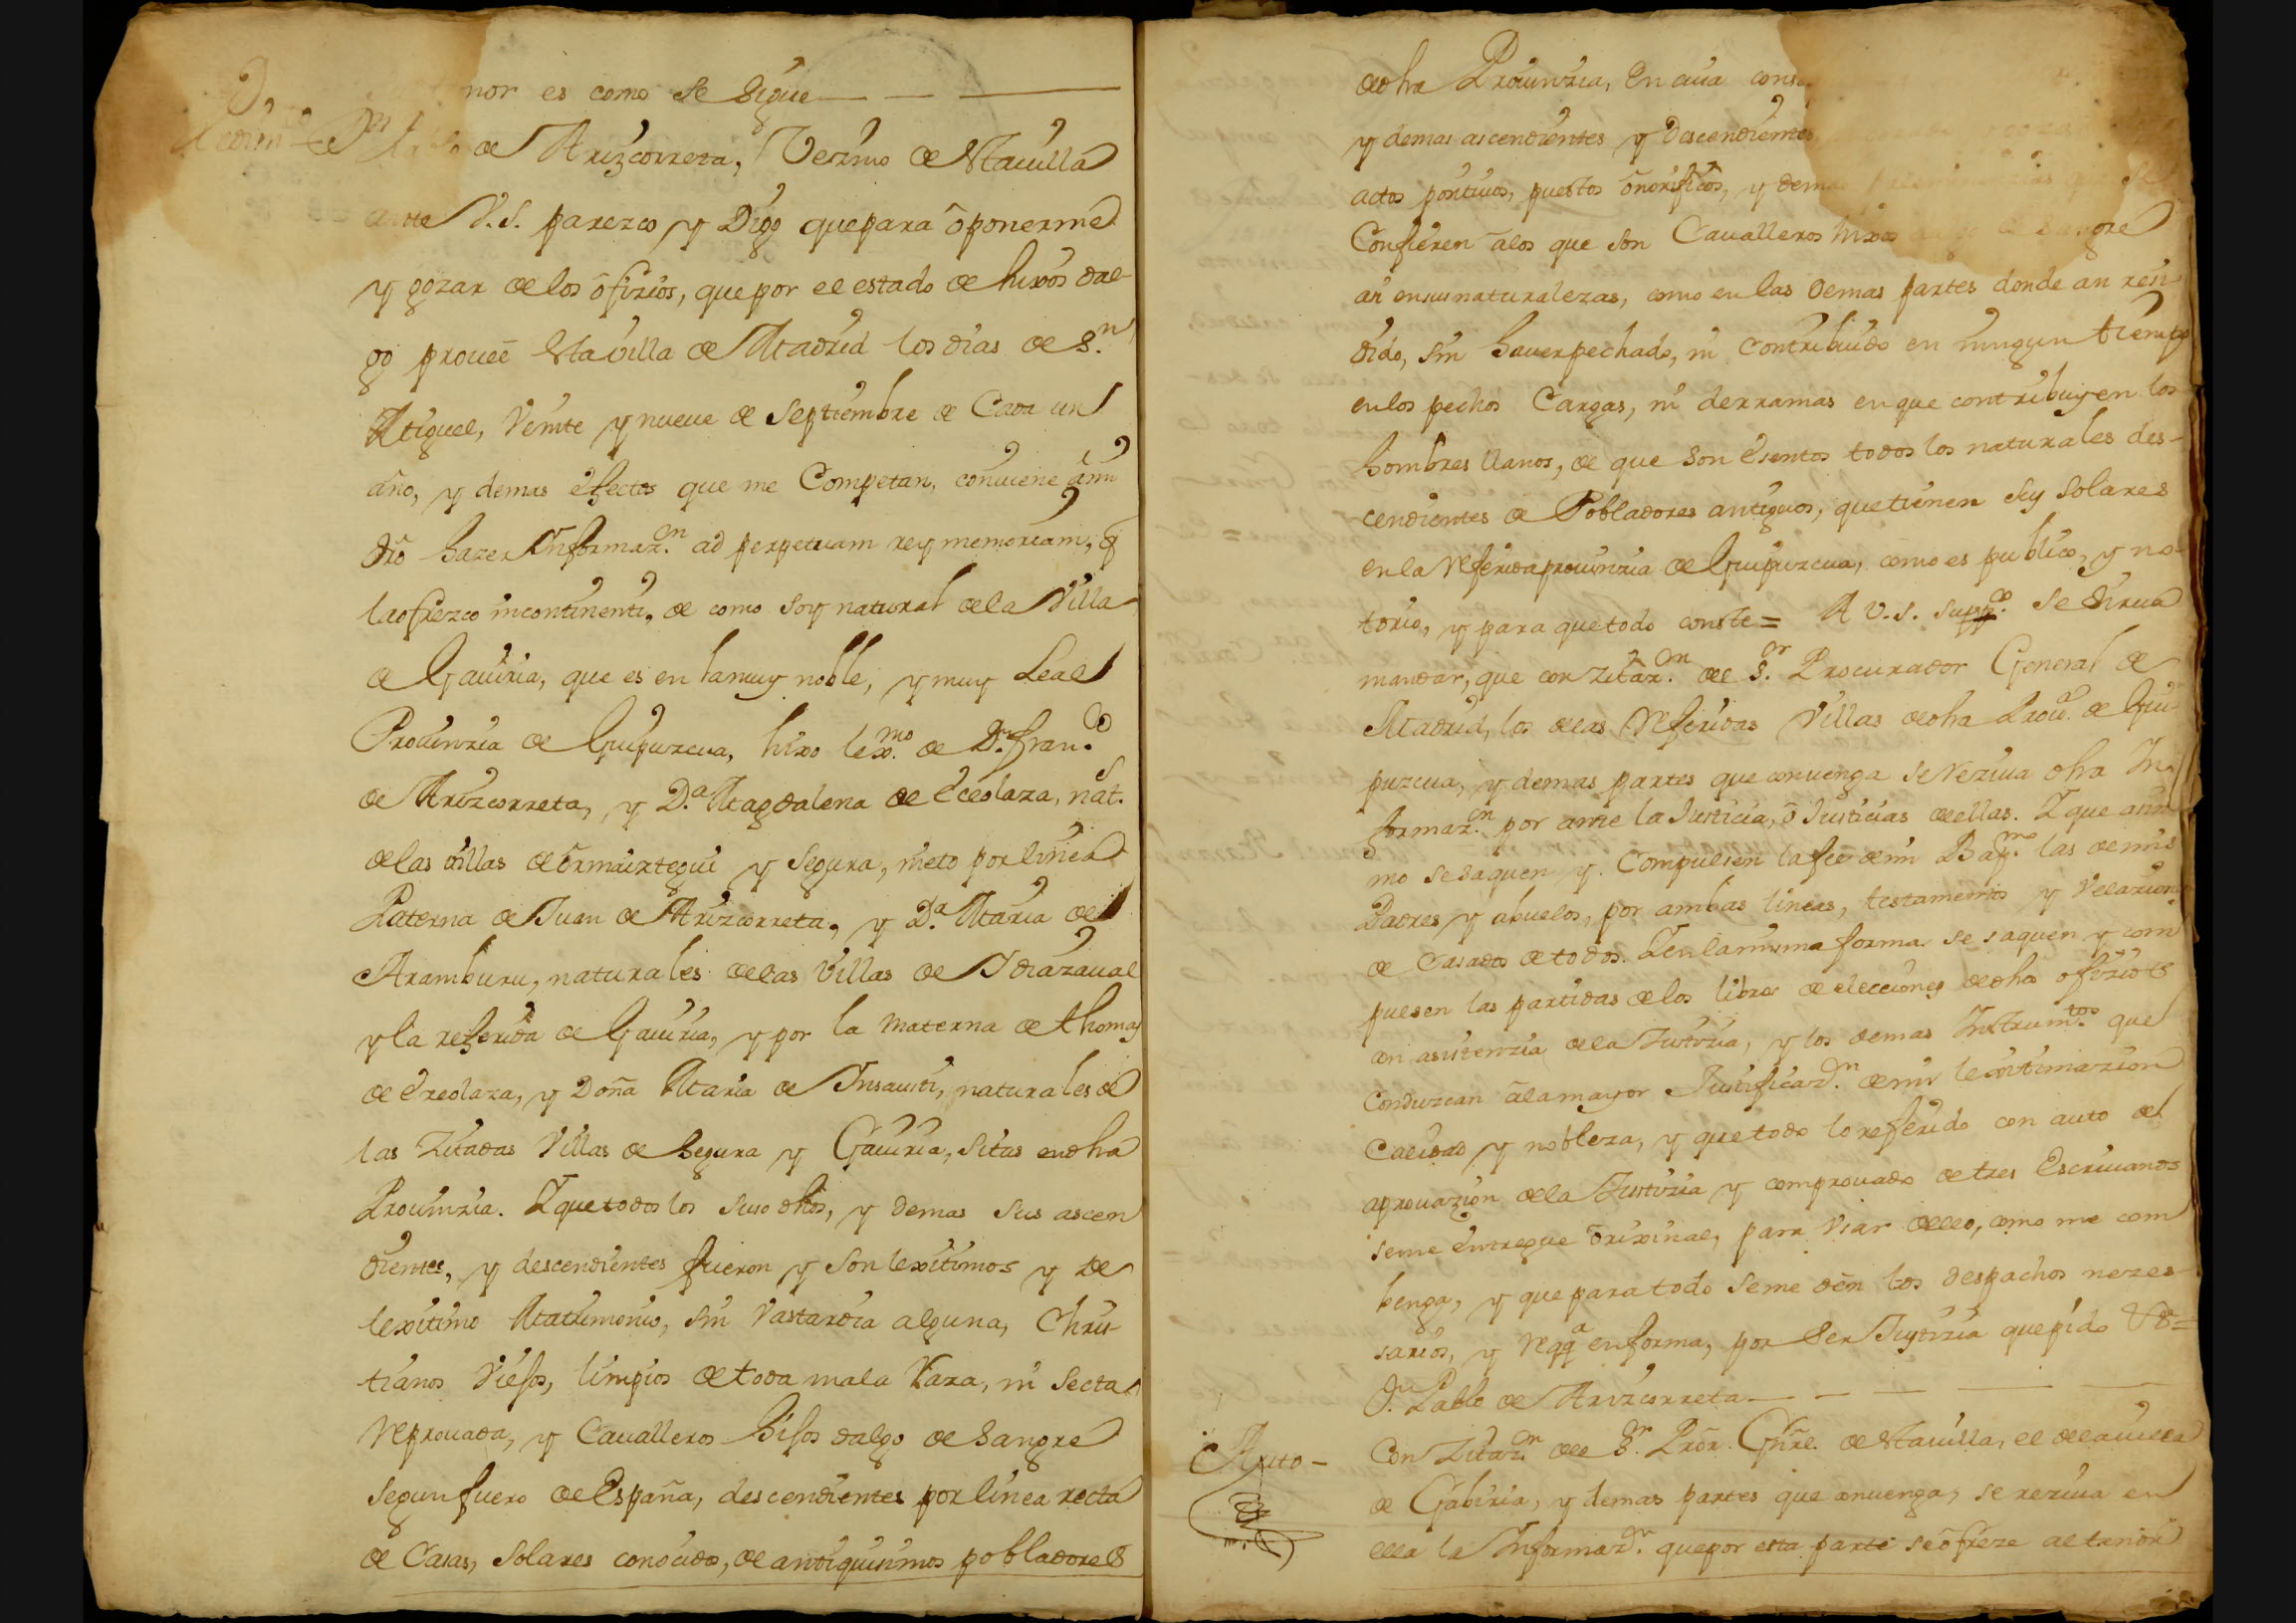 nor es como se sigue
Pedim.to Dn Pablo de Arizcorreta, Vezino de Stauilla
ante V.S. parezco y Digo que para oponerme
y gozar de los ofizios, que por el estado de hixos dal-
go proueè Sta villa de Madrid los dias de S.n
Miguel, Veinte y nueue de Septiembre de Cada un
año, y demas efectos que me Competan, conuiene âmi
dr̃o hazer Informaz.on ad perpetuam rey memoriam, q̃
la ofrezco incontinenti, de como soy natural de la Villa
de Gauiria, que es en la muy noble, y muy Leal
Prouinzia de Guipuzcua, hixo lex.mo de D.n Fran.co
de Arizcorreta, y D.a Magdalena de Ezeolaza, nat.s
de las villas de ormaiztegui y Segura, nieto por linea
Paterna de Juan de Arizcorreta, y D.a Maria de
Aramburu, naturales de las Villas de Idiazaual
y la referida de Gauiria, y por la materna de thomas
de Ezeolaza, y Doña Maria de Insausti, naturales de
las Zitadas Villas de Segura y Gauiria, sitas en dha
Prouinzia. Y que todos los suso dhos, y demas sus ascen
dientes, y descendientes fueron y son lexitimos y de
lexitimo Matrimonio, sin Vastardia alguna, Chris-
tianos Viejos, limpios de toda mala Raza, ni secta
Reprouada, y Caualleros Hijos dalgo de Sangre
segun fuero de España, descendientes por linea recta
de Casas, Solares conocidos, de antiquisimos pobladores
de dha Prouinzia, En cuia
y demas ascendientes y Descendientes
actos positiuos, puestos onorificos, y demas se
Confieren âlos que son Caualleros hixos dalgo de Sangre
asi en sus naturalezas, como en las demas partes donde an resi-
dido, sin hauer pechado, ni Contribuido en ningun tiempo
en los pechos Cargas, ni derramas en que contribuyen los
hombres llanos, de que son esentos todos los naturales des-
cendientes de Pobladores antiguos, que tienen sus solares
en la Referida prouinzia de Guipuzcua, como es publico, y no-
torio, y para que todo conste = A V.S. supp.co se sirua
mandar, que con zitaz.on del S.or Procurador General de
Madrid, los de las Referidas Villas de dha Prou.a de Gui-
puzcua, y demas partes que conuenga se Reziua dha In-
formaz.on por ante la Justicia, ô Justicias de ellas. Y que asimis-
mo se saquen y Compulsen la fee de mi Bap.mo las de mis
Padres y abuelos, por ambas lineas, testamentos y Velazion.s
de Casados de todos. Y en la misma forma se saquen y com
pulsen las partidas de los libros de elecciones de dhos ofizios
con asistenzia de la Justizia, y los demas Instrum.tos que
Conduzcan âla mayor Justificaz.on de mi lexitimazion
Calidad y nobleza, y que todo lo referido con auto de
aprouazion de la Justizia y comprouado de tres Escriuanos
se me entregue orixinal, para Vsar de ello, como me com
benga, y que para todo se me dèn los despachos nezes-
sarios, y Reqq.a en forma, por ser Justizia que pido Vs=
D.n Pablo de Arizcorreta
Auto- Con Zitaz.on del S.r Prõr Gñrl. de Stauilla, el de la villa
de Gabiria, y demas partes que conuenga, se reziua en
ella la Informaz.on que por esta parte se ofreze al tenor